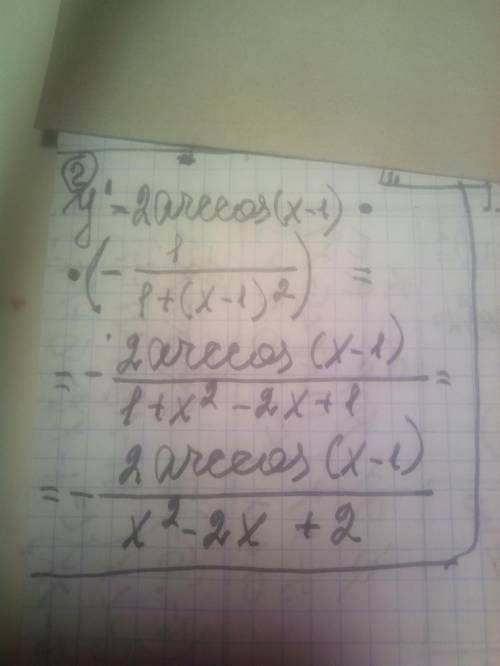 ②
y' = 2 arccos(x-1) •
• (- 1/(1+(x-1)²)) =
= - (2 arccos (x-1))/(1+x²-2x+1) =
= - (2 arccos (x-1))/(x²-2x +2)